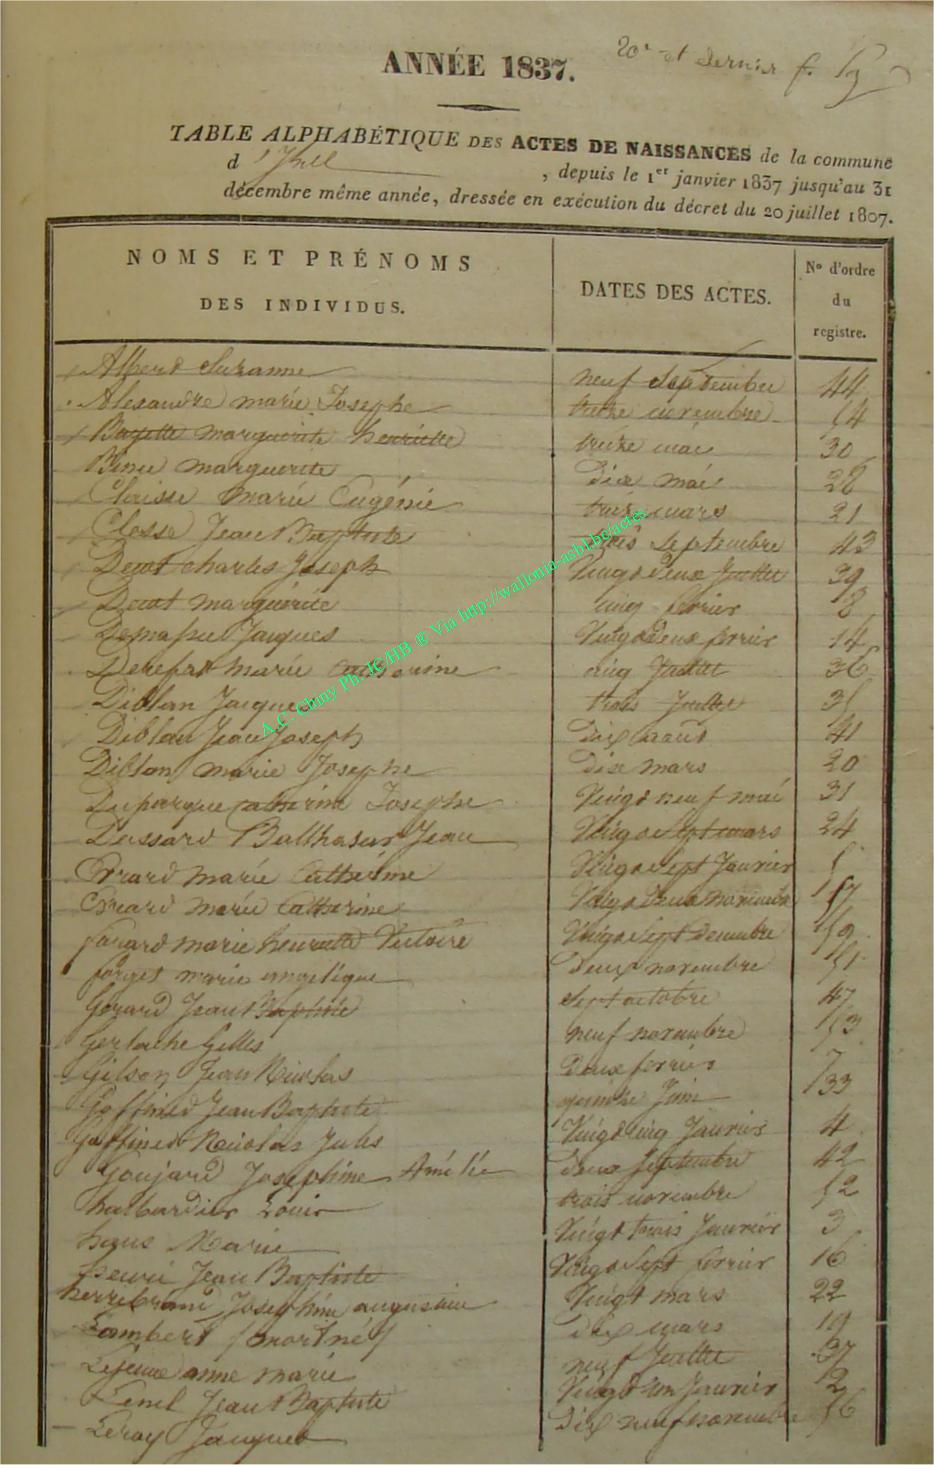 ANNÉE 1837.
20e et dernier f.
TABLE ALPHABÉTIQUE DES ACTES DE NAISSANCES de la commune
d , depuis le 1er janvier 1837 jusqu'au 31
décembre même année, dressée en exécution du décret du 20 juillet 1807.
NOMS ET PRÉNOMS
DES INDIVIDUS.
DATES DES ACTES.
No d'ordre
du
registre.
Suzanne neuf Septembre 44
Alexandre marie Josephe novembre 54
Bayette marguerite henriette treize mai 30
marguerite Dix mai 28
Claisse marie Eugénie mars 21
Closse Jean Baptiste trois Septembre 43
Charles Joseph Vingt Deux Juillet 39
marguerite cinq fevrier 8
Jacques Vingt Deux fevrier 14
marie catherine cinq Juillet 36
Diblan Jacques trois Juillet 35
Diblan Jean Joseph Dix aout 41
Diblan marie Josephe Dix mars 20
Duparque catherine Josephe Vingt neuf mai 31
Dussard Balthasar Jean Vingt Sept mars 24
Evrard marie Catherine Vingt Sept Janvier 5
Evrard marie Catherine Vingt Deux novembre 57
marie henriette Victoire Vingt Sept Decembre 59
forget marie angelique Deux novembre 51
Gerard Jean Baptiste Sept octobre 47
Gerlache Gilles neuf novembre 53
Gilson Jean Nicolas Deux fevrier 7
Goffinet Jean Baptiste quinze Juin 33
Goffinet Nicolas Jules Vingt cinq Janvier 4
Goujard Joséphine Amélie deux Septembre 42
halbardier Louis trois novembre 52
Marie Vingt trois Janvier 3
henri Jean Baptiste Vingt Sept fevrier 16
herrebrand Joséphine augustine Vingt mars 22
Lambert (mort né) Dix mars 19
Lejeune anne marie neuf Juillet 37
Jean Baptiste Vingt un Janvier 2
Leroy Jacques Dix neuf novembre 56
A.C. Chiny Ph. JC/HB ® Via http://wallonia-asbl.be/actes